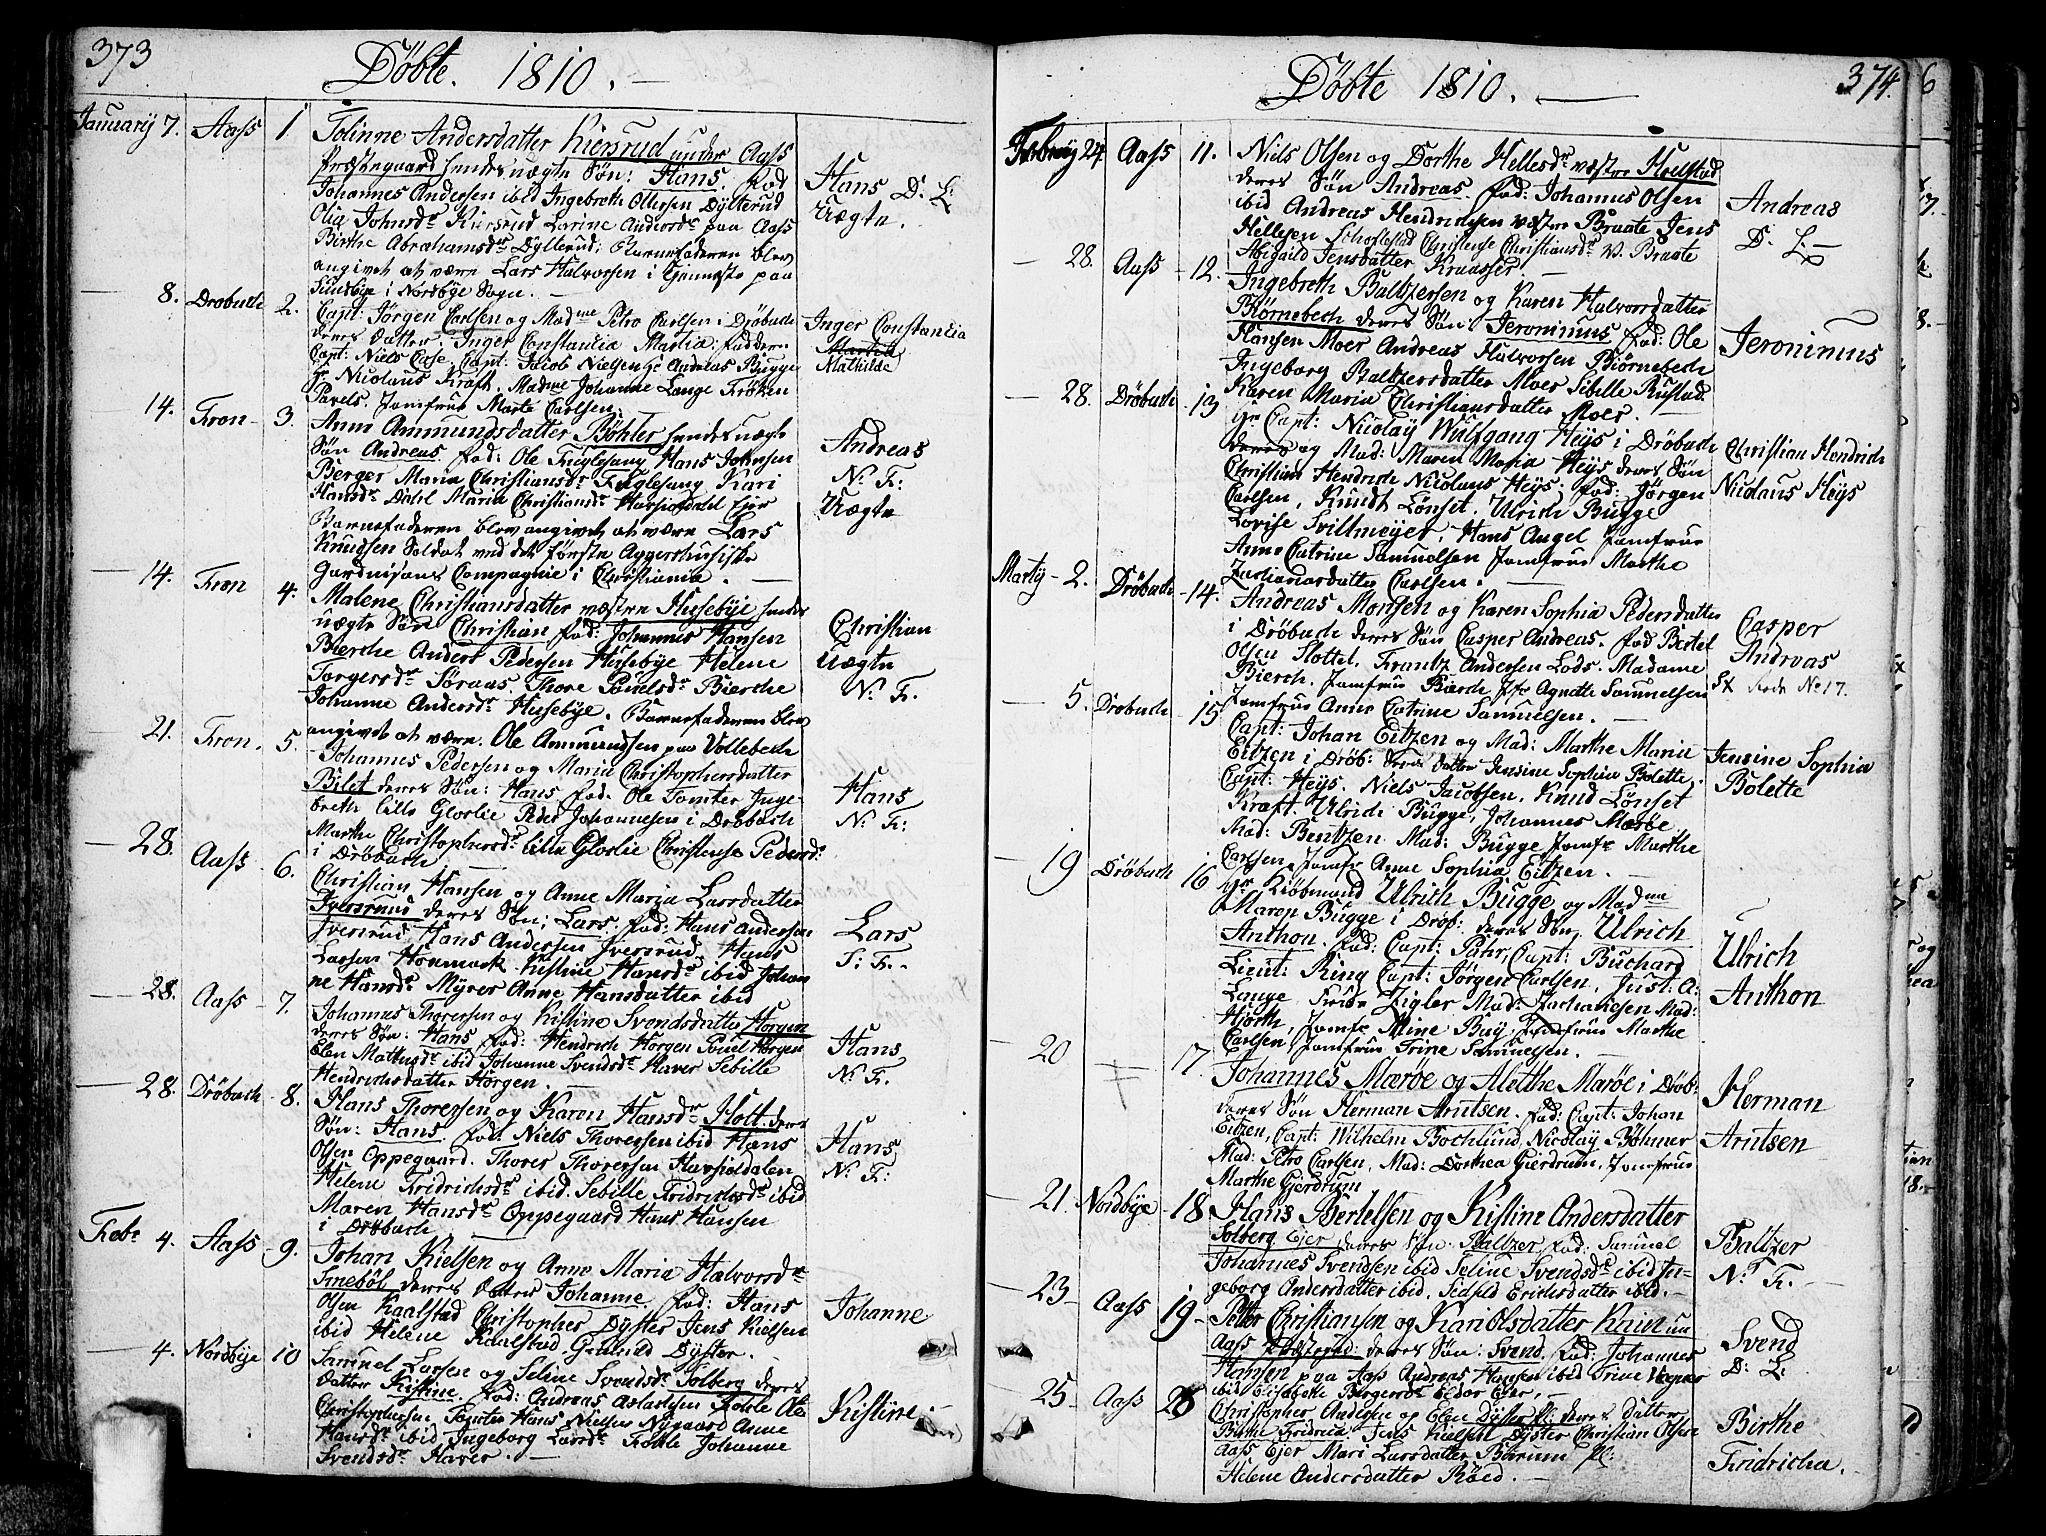 373
Döbte. 1810. —
January 7. Aass 1
Tolinne Andersdatter Kiersrud under Aass
Præstegaard hendes uægte Søn: Hans. Fad
Johannes Andersen ibid Ingebreth Olhsen Dyllerud
Olia Johnsdr Kiersrud Larine Andersdr paa Aass
Birthe Abrahamsdr Dyllerud; Barnefaderen blev
angivet at være Lars Halvorsen i Tieneste paa
Sundbye i Nordbye Sogn. —
Hans D. L:
Uægte.
— 8. Drobach 2.
Capt: Jörgen Carlsen og Madme Petro Carlsen i Dröbach
deres Datter: Inger Constancia Martia. Faddere
Capt: Niels Case. Capt: Jacob Nielsen Andreas Bugge
Hr Nicolaus Kraft. Madme Johanne Lange Fröken
Pavels. Jomfrue Marte Carlsen.
Inger Constancia
Mathilde
14. Fron 3.
Anne Ammundsdatter Böhler hendes uægte
Søn Andreas. Fad: Ole Fuglesang Hans Johnsen
Berger Maria Christiansdr Fuglesang Kari
Hansdr Dahl Maria Christiansdr Havsiødahl Eier
Barnefaderen blev angivet at være Lars
Knudsen Soldat med det første Aggershusiske
Gardnisons Compagnie i Christiania. —
Andreas
N. F:
Uægte
— 14. Fron 4.
Malene Christiansdatter væstre Husebye hendes
uægte Søn Christian Fad: Johannes Hansen
Bierche Anders Pedersen Husebye Helene
Torgersdr Søraas. Thore Povelsdr Bierche
Johanne Andersdr Husebye. Barnefaderen blev
angivet at være. Ole Ammundsen paa Vollebech
Christian
Uægte
N. F.
— 21. Fron. 5.
Johannes Pedersen og Maria Christophersdatter
Bilet deres Søn: Hans Fad. Ole Tomter Inge-
breth Lille Glorlie Peder Johannesen i Dröbach
Marthe Christophersdr Lille Glorlie Christense Pedersdr
i Dröbach
Hans
N. F:
— 28. Aass 6.
Christian Hansen og Anne Maria Larsdatter
Iversrud deres Søn: Lars. Fad: Hans Andersen
Iversrud Hans Andersen Iversrud Hans
Larsen Honmack Kistine Hansdr ibid Johan
ne Hansdr Myrer Anne Hansdatter ibid
Lars
F: F.
— 28. Aass 7.
Johannes Thoresen og Kistine Svendsdatter Horgen
deres Søn: Hans Fad: Hendrich Horgen Povel Horgen
Elen Mathisdr ibid Johanne Svendsdr Haver Sebille
Hendrichsdatter Horgen.
Hans
N. F.
— 28. Dröbach 8.
Hans Thoresen og Karen Hansdr Holt deres
Søn: Hans Fad. Niels Thoresen ibid Hans
Olsen Oppegaard. Thorer Thoresen Havsiödalen
Helene Fridrichsdr ibid. Sebille Fridrichsdr ibid
Maren Hansdr Oppegaard Hans Hansen
i Dröbach
Hans
N. F:
Febr 4. Aass 9.
Johan Kielsen og Anne Maria Halvorsdr
Smeböl deres Datter Johanne. Fad: Hans
Olsen Kaalstad Christopher Dyster Jens Kielsen
ibid Helene Kaalstad Gunild Dyster. —
Johanne
— 4. Nordbye 10
Samuel Larsen og Seline Svendsdr Solberg deres
Datter Kistine. Fad: Andreas Aslachsen Fohle Ole
Christophersen Tomter Hans Nielsen Nygaard Anne
Hansdr ibid Ingeborg Larsdr Fohle Johanne
Svendsdr Haver. —
Kistine. —
374.
Döbte 1810. —
24 Aass 11.
Niels Olsen og Dorthe Hellesdr væstre
deres Søn Andreas. Fad: Johannes Olsen
ibid Andreas Hendrichsen væstre Braate Jens
Hellesen Christense Christiansdr V. Braate
Abigaild Jensdatter Kraasser. —
Andreas
D. L. —
— 28. Aass 12.
Ingebreth Baltzersen og Karen Halvorsdatter
Biörnebech deres Søn: Jeronimus Fad: Ole
Hansen Moer Andreas Halvorsen Biörnebech
Ingeborg Baltzersdatter Moer Sibille Rustad
Karen Maria Christiansdatter Moer. —
Jeronimus
— 28. Dröbach 13
Hr Capt: Nicolay Wulfgang Heys i Dröbach
deres og Mad: Maren Maria Heys deres Søn
Christian Hendrich Nicolaus Heys. Fad: Jörgen
Carlsen, Knudt Lönset. Ulrich Bugge
Lovise Svillmeyer, Hans Angel Jomfrue
Anne Catrine Samuelsen Jomfrue Marthe
Zachariasdatter Carlsen. —
Christian Hendrich
Nicolaus Heys
Marty 2. Dröbach 14.
Andreas Monsen og Karen Sophia Pedersdatter
i Dröbach deres Søn Casper Andreas. Fad Bertel
Olsen Slottel. Frantz Andersen Lods. Madame
Bierch. Jomfrue Bierch Jfr Agnethe Samuelsen
Jomfrue Anne Catrine Samuelsen. —
Casper
Andreas
No 17.
— 5. Drobach 15
Capt: Johan Eitzen og Mad: Marthe Maria
Eitzen i Dröb: deres Datter Jensine Sophia Bolette.
Capt: Heys. Niels Jacobsen. Knud Lönset
Kraft. Ulrich Bugge, Johannes Mæröe
Mad: Bentzen Mad: Bugge Jomfr Marthe
Carlsen, Jomfr Anne Sophia Eitzen. —
Jensine Sophia
Bolette
— 19 Dröbach 16
Hr Kiöbmand Ulrich Bugge og Madme
Maren Bugge i Dröb: deres Søn Ulrich
Anthon. Fad: Capt: Påhr, Capt: Buchard
Lieut: Ring Capt: Jörgen Carlsen, Just: A:
Lange Frid: Zigler Mad: Zachariesen Mad:
Hjorth, Jomfr Mine Buy, Jomfrue Marthe
Carlsen, Jomfrue Trine Samuelsen. —
Ulrich
Anthon
— 20 — 17.
Johannes Mæröe og Alethe Maröe i Dröb:
deres Søn Herman Arntsen. Fad: Capt: Johan
Eitzen, Capt: Wilhelm Bochlund, Nicolay Böhmer
Mad: Petro Carlsen, Mad: Dorthea Gierdrum, Jomfrue
Marthe Gierdrum
Herman
Arntsen
— 21. Nordbye 18
Hans Bertelsen og Kistine Andersdatter
Solberg Eier deres Søn: Baltzer Fad: Samuel
Johannes Svendsen ibid Seline Svendsdr ibid In-
geborg Andersdatter ibid. Sidsel Erichsdatter ibid. —
Baltzer
N. F. —
— 23 Aass 19
Petter Christiansen og Kari Olsdatter un
Aass deres Søn: Svend. Fad: Johannes
Hansen paa Aass Andreas Hansen ibid Trine
ibid Elisabeth Eldor Eier, —
Svend
D: L.
— 25 Aass 20
Christopher Andersen og Elen Dyster pl: deres Datter
Birthe Fridricia Jens Kielsen Dyster Christian Olsen
Aass Eier Mari Larsdatter Börsum pl:
Helene Andersdatter Röed. —
Birthe
Fridricha.